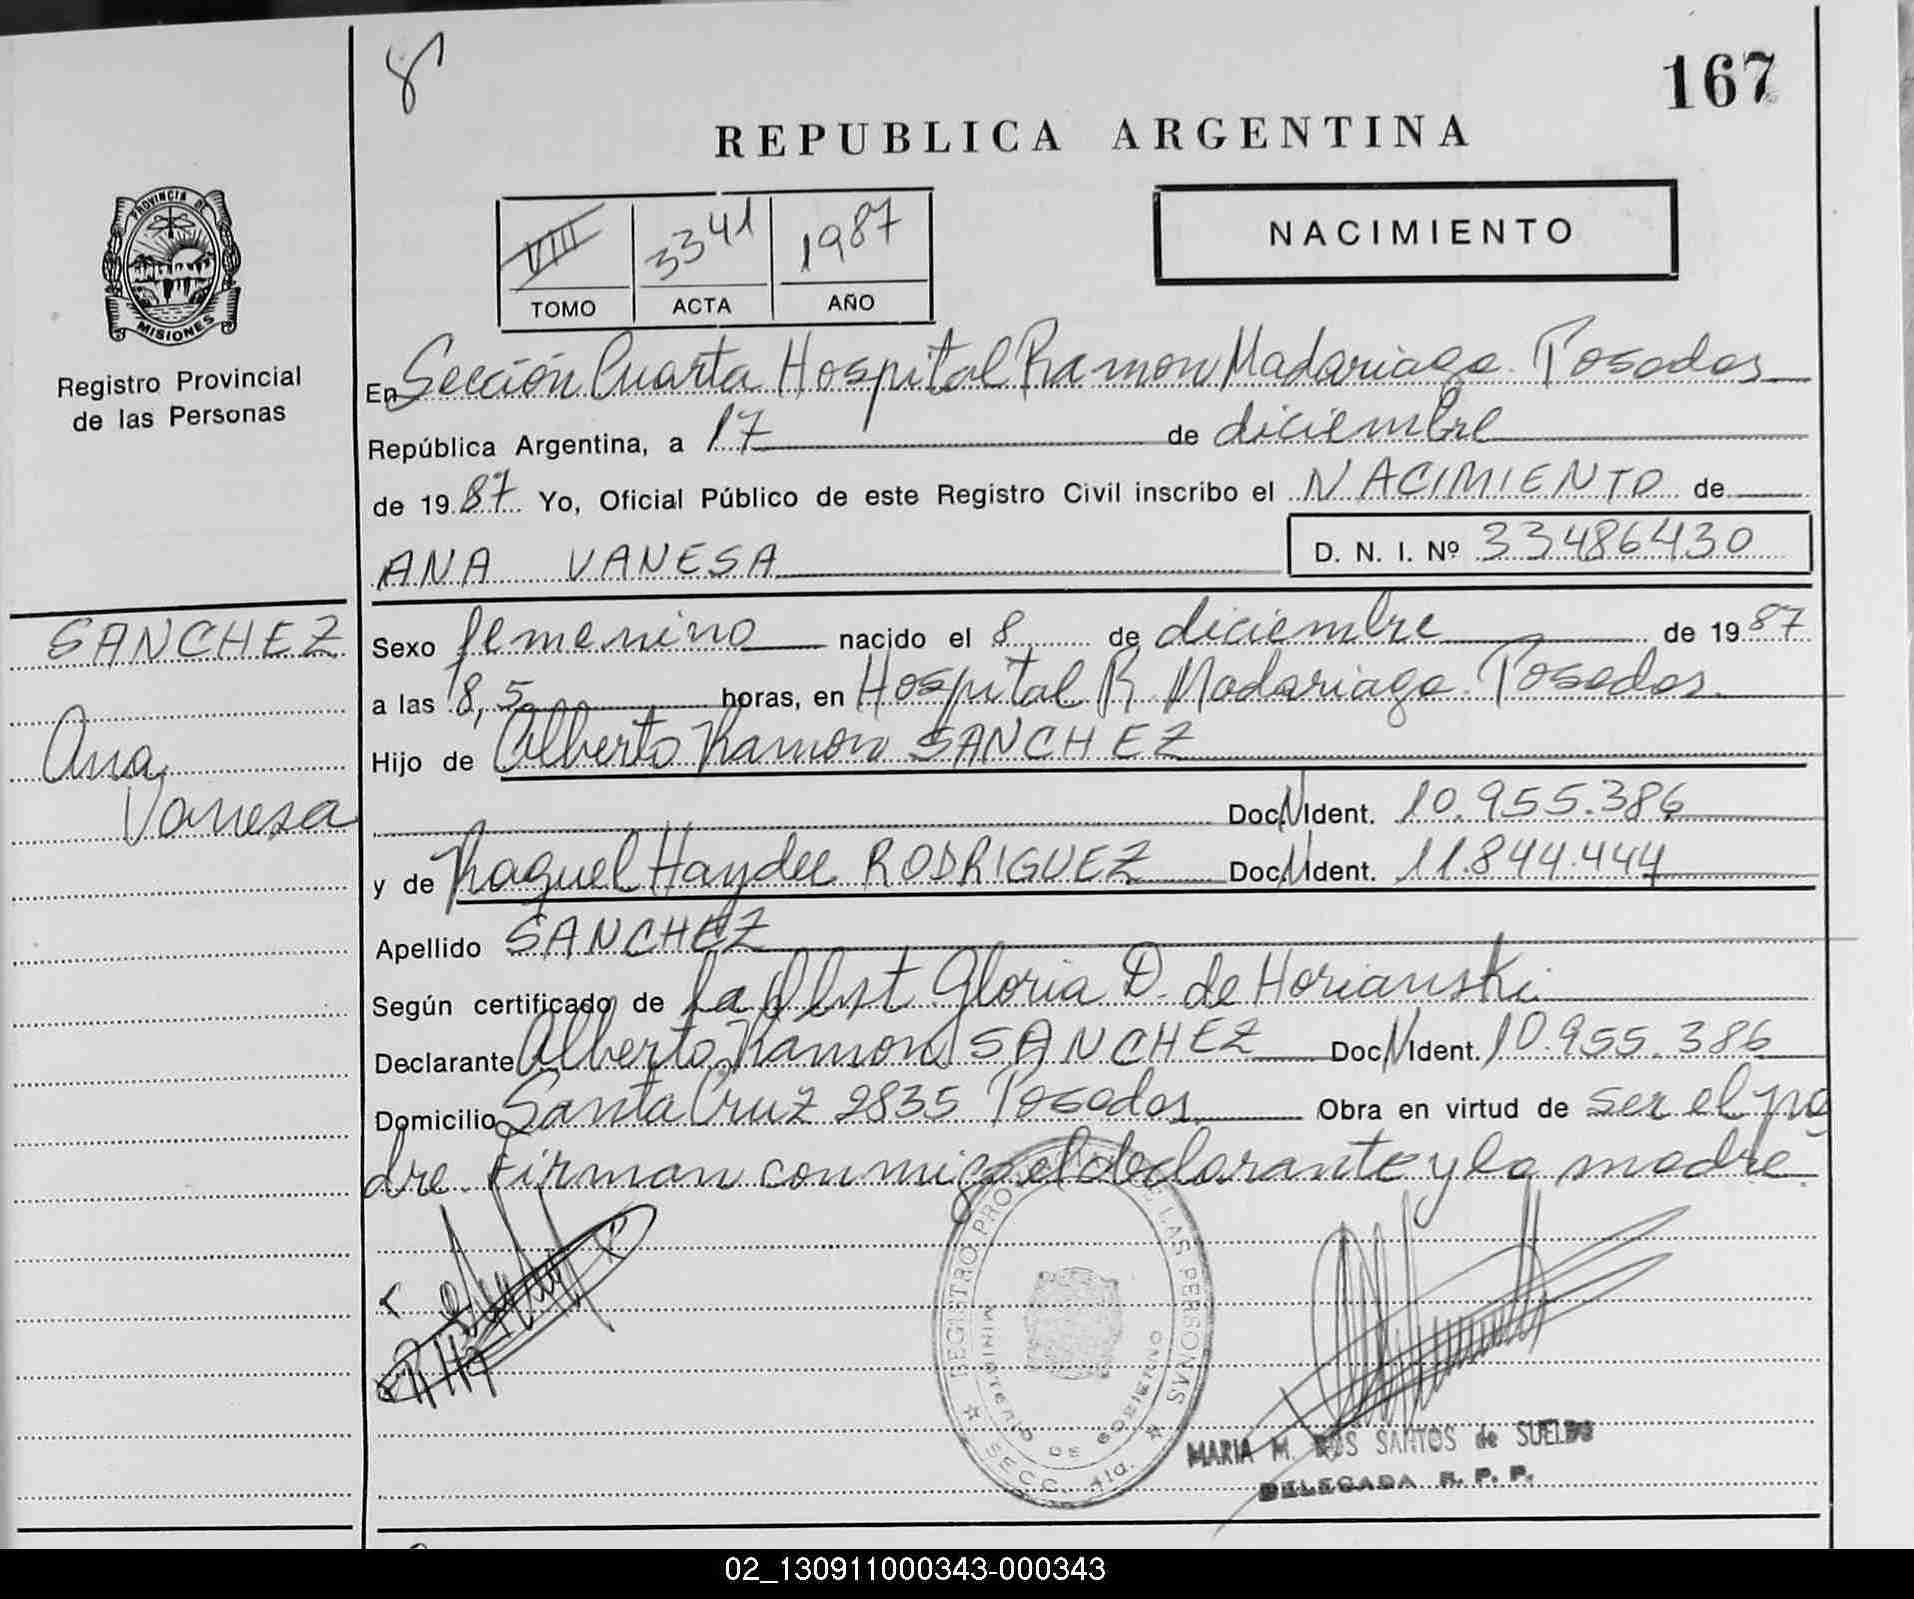 8
167
REPUBLICA ARGENTINA
PROVINCIA DE
MISIONES
Registro Provincial
de las Personas
VIII 3341 1987
TOMO ACTA AÑO
NACIMIENTO
En Sección Cuarta Hospital Ramon Madariaga. Posadas
República Argentina, a 17 de diciembre
de 1987 Yo, Oficial Público de este Registro Civil inscribo el NACIMIENTO de
ANA VANESA D. N. I. Nº 33486430
SANCHEZ
Ana
Vanesa
Sexo femenino nacido el 8 de diciembre de 1987
a las 8,5 horas, en Hospital R. Madariaga. Posadas.
Hijo de Alberto Ramon SANCHEZ
Doc. N Ident. 10.955.386
y de Raquel Haydee RODRIGUEZ Doc. N Ident. 11.844.444
Apellido SANCHEZ
Según certificado de La Obst. Gloria D. de Horianski
Declarante Alberto Ramon SANCHEZ Doc. N Ident. 10.955.386
Domicilio Santa Cruz 2835 Posadas Obra en virtud de ser el pa
dre. Firman conmigo el declarante y la madre.
LAS PERSONAS
MINISTERIO DE GOBIERNO
SECC. 4ta.
MARIA M. DOS SANTOS de SUELDO
DELEGADA R. P. P.
02_130911000343-000343